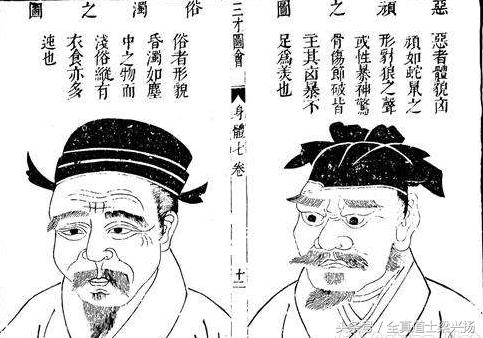 惡頑之圖
惡者體貌凶
頑如蛇鼠之
形豺狼之聲
或性暴神驚
骨傷節破皆
主其凶暴不
足爲美也
三才圖會
身體七卷
十二
俗濁之圖
俗者形貌
昏濁如塵
中之物而
淺俗縱有
衣食亦多
迍也
头条号／全真道士梁兴扬